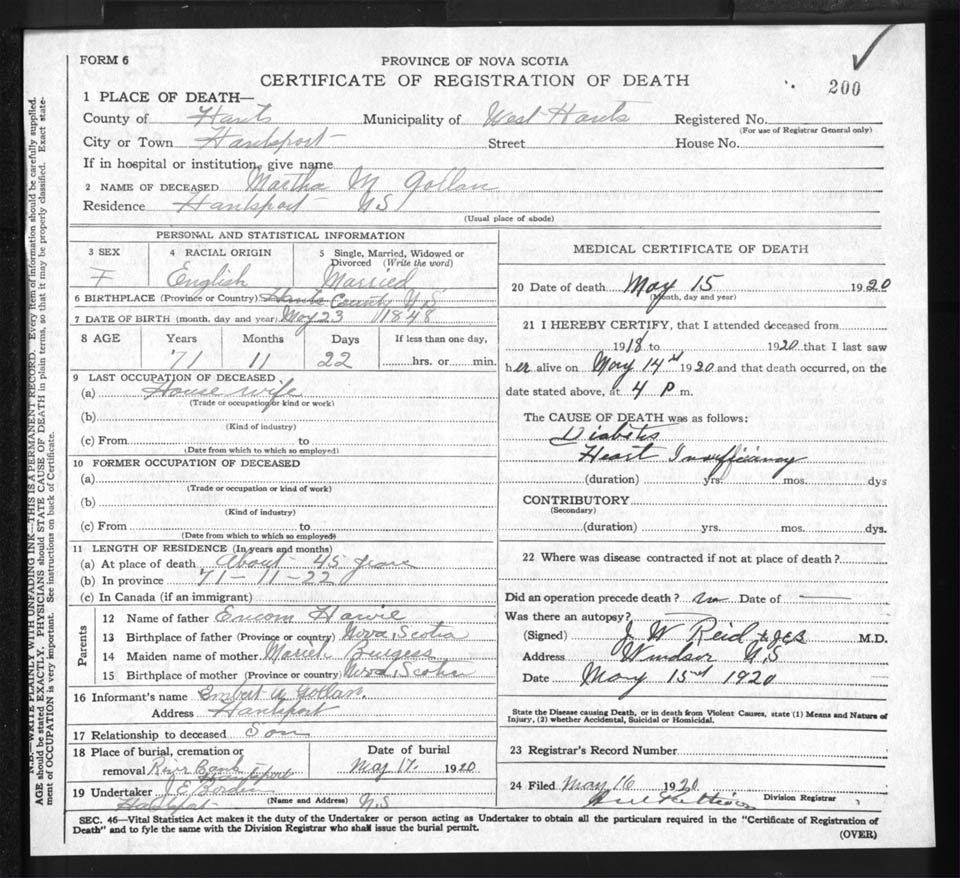 FORM 6
PROVINCE OF NOVA SCOTIA
CERTIFICATE OF REGISTRATION OF DEATH
200
1 PLACE OF DEATH—
County of Hants Municipality of West Hants Registered No.
(For use of Registrar General only)
City or Town Hantsport Street House No.
If in hospital or institution, give name
2 NAME OF DECEASED Martha M Gollan
Residence Hantsport N S
(Usual place of abode)
PERSONAL AND STATISTICAL INFORMATION
3 SEX F
4 RACIAL ORIGIN English
5 Single, Married, Widowed or Divorced (Write the word) Married
6 BIRTHPLACE (Province or Country) Hants County N S
7 DATE OF BIRTH (month, day and year) May 23 1848
8 AGE Years Months Days If less than one day,
71 11 22 hrs. or min.
9 LAST OCCUPATION OF DECEASED
(a) House wife
(Trade or occupation or kind or work)
(b)
(Kind of industry)
(c) From to
(Date from which to which so employed)
10 FORMER OCCUPATION OF DECEASED
(a)
(Trade or occupation or kind of work)
(b)
(Kind of industry)
(c) From to
(Date from which to which so employed)
11 LENGTH OF RESIDENCE (In years and months)
(a) At place of death About 45 years
(b) In province 71-11-22
(c) In Canada (if an immigrant)
Parents
12 Name of father Howie
13 Birthplace of father (Province or country) Nova Scotia
14 Maiden name of mother Burgess
15 Birthplace of mother (Province or country) Nova Scotia
16 Informant's name Gollan
Address Hantsport
17 Relationship to deceased Son
18 Place of burial, cremation or Date of burial
removal River Bank Hantsport May 17. 1920
19 Undertaker J E Borden
(Name and Address)
Hantsport N S
MEDICAL CERTIFICATE OF DEATH
20 Date of death May 15 1920
(Month, day and year)
21 I HEREBY CERTIFY, that I attended deceased from
1918 to 1920 that I last saw
her alive on May 14 1920 and that death occurred, on the
date stated above, at 4 P m.
The CAUSE OF DEATH was as follows:
Diabetis
Heart Insufficiency
(duration) yrs. mos. dys
CONTRIBUTORY
(Secondary)
(duration) yrs. mos. dys.
22 Where was disease contracted if not at place of death?
Did an operation precede death? no Date of
Was there an autopsy?
(Signed) J W Reid M.D.
Address Windsor N.S
Date May 15 1920
State the Disease causing Death, or in death from Violent Causes, state (1) Means and Nature of
Injury, (2) whether Accidental, Suicidal or Homicidal.
23 Registrar's Record Number
24 Filed May 16 1920
Division Registrar
SEC. 46—Vital Statistics Act makes it the duty of the Undertaker or person acting as Undertaker to obtain all the particulars required in the "Certificate of Registration of
Death" and to fyle the same with the Division Registrar who shall issue the burial permit.
(OVER)
N.B.—WRITE PLAINLY WITH UNFADING INK—THIS IS A PERMANENT RECORD. Every item of information should be carefully supplied.
AGE should be stated EXACTLY. PHYSICIANS should STATE CAUSE OF DEATH in plain terms, so that it may be properly classified. Exact state-
ment of OCCUPATION is very important. See instructions on back of Certificate.